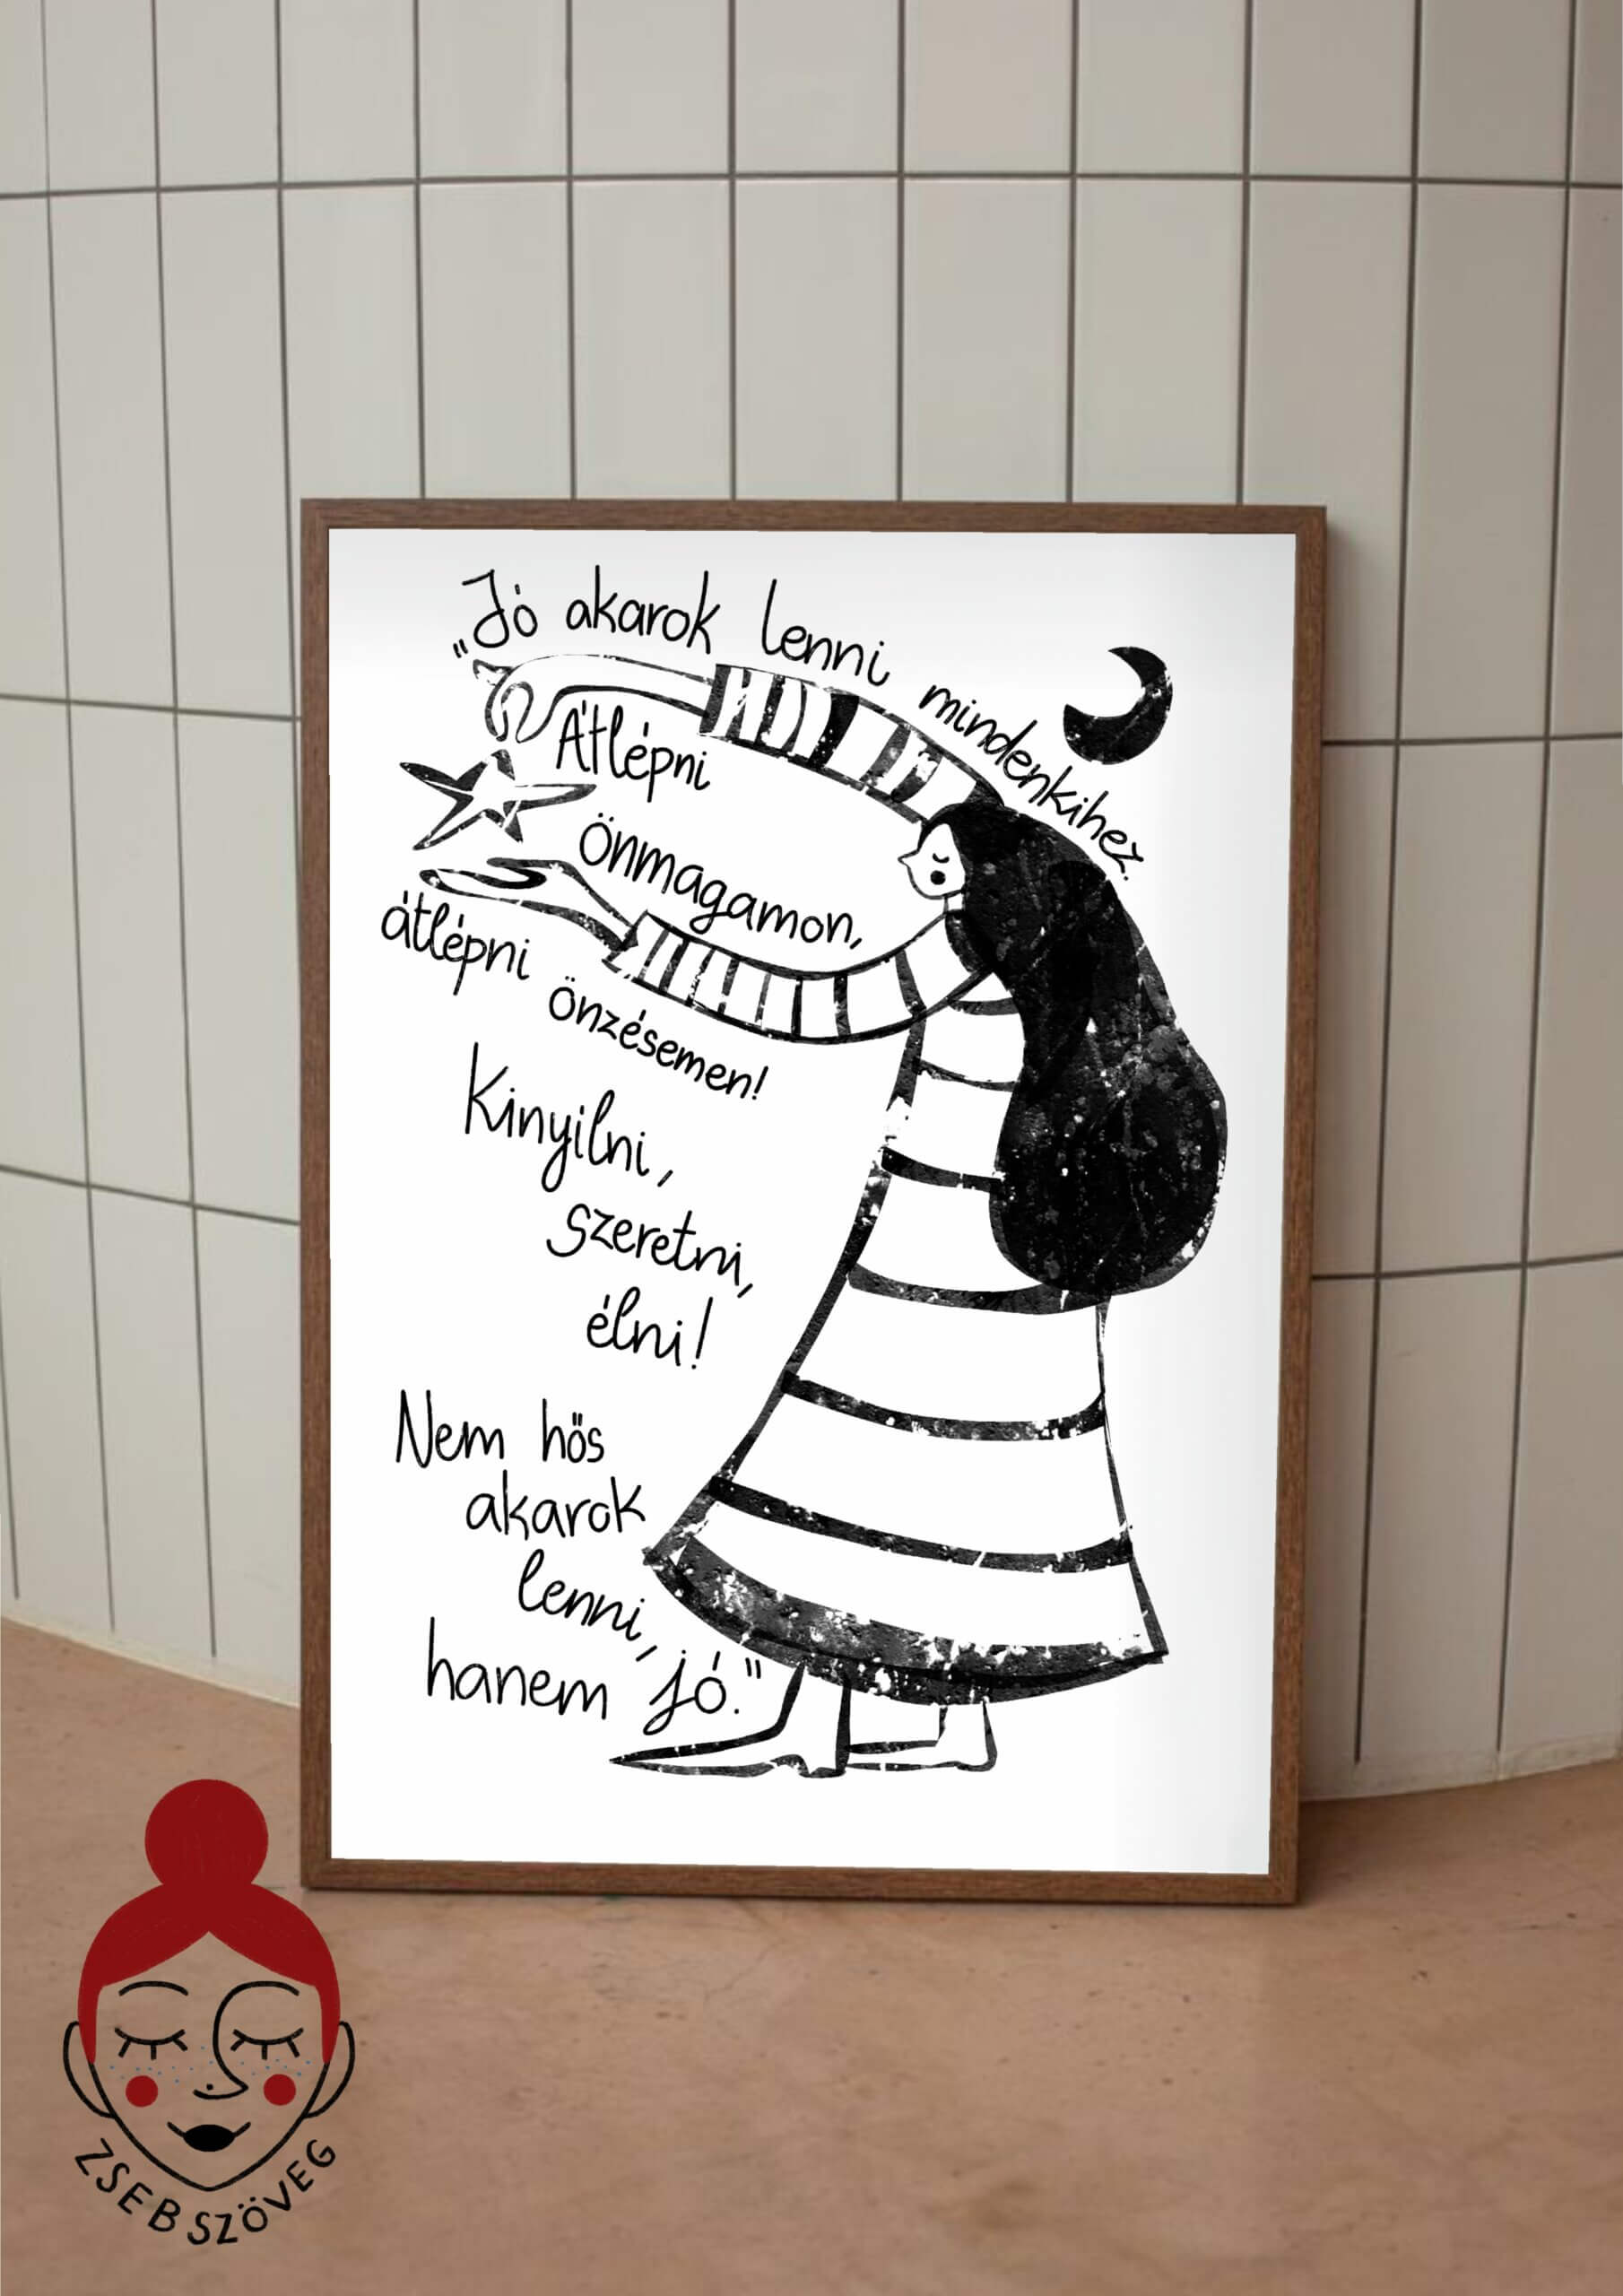 „Jó akarok lenni mindenkihez.
Átlépni
önmagamon,
átlépni önzésemen!
Kinyilni,
szeretni,
élni!
Nem hős
akarok
lenni,
hanem jó."
ZSEBSZÖVEG